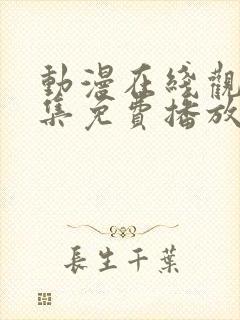 動漫在綫觀
集免費播放
長生千葉